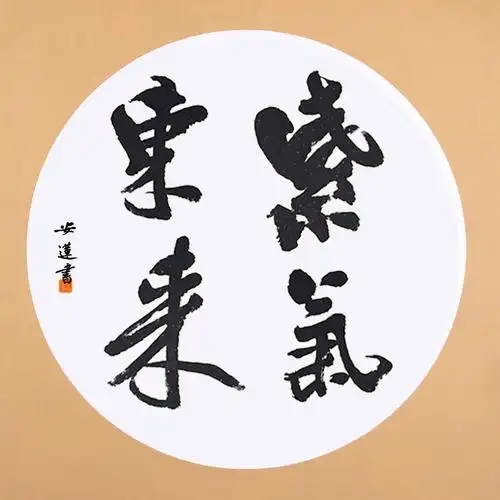 紫氣
東来
安蓮書